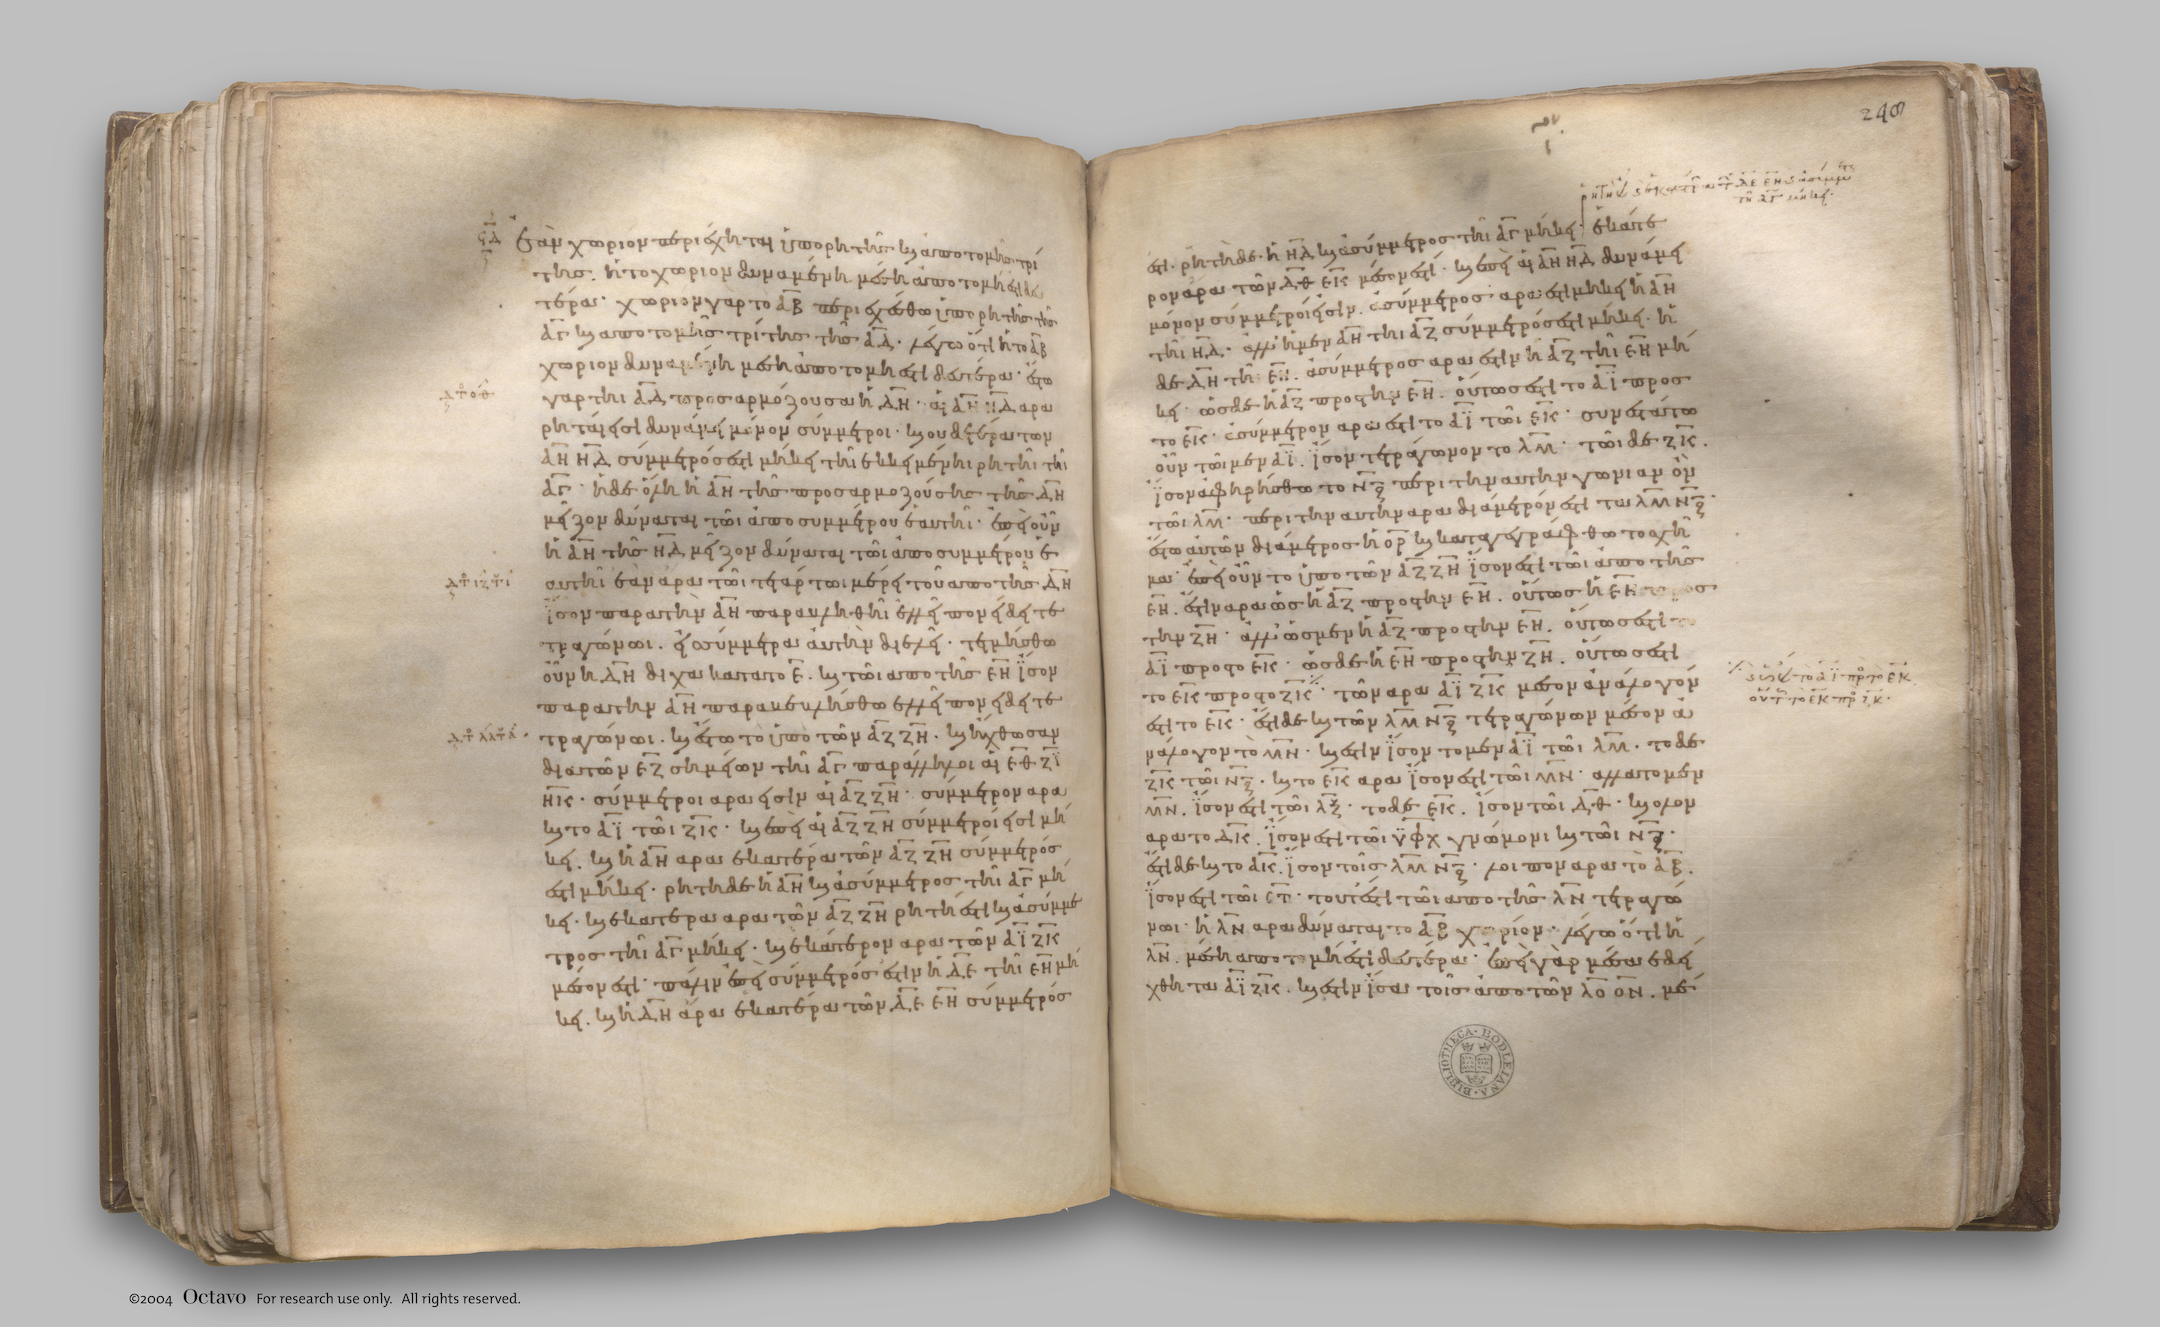 ϟΔ Ἐὰν χωρίον περιέχηται ὑπο ρητῆς καὶ ἀποτομῆς τρί
της. ἡ το χωρίον δυναμένη μέση ἀποτομή ἐστι δευ
τέρα· χωρίον γαρ το ΑΒ περιεχέσθω ὑπο ρητῆς τῆς
ΑΓ καὶ αποτομῆς τρίτης τῆς ΑΔ· λέγω ὅτι ἡ το ΑΒ
χωρίον δυναμένη μέση ἀποτομή ἐστι δευτέρα· ἔστω
γαρ τῆι ΑΔ προσαρμόζουσα ἡ ΔΗ· αἱ ΑΗ ΗΔ αρα
ρηταί εἰσι δυνάμει μόνον σύμμετροι· καὶ ουδετέρα των
ΑΗ ΗΔ σύμμετρός ἐστι μήκει τῆι εκκειμένηι ρητῆι τῆι
ΑΓ· ἡ δε ὅλη ἡ ΑΗ τῆς προσαρμοζούσης τῆς ΔΗ
μεῖζον δύναται τῶι ἀπο συμμέτρου ἑαυτῆι· ἐπεὶ οὖν
ἡ ΑΗ τῆς ΗΔ μεῖζον δύναται τῶι ἀπο συμμέτρου ἑ
αυτῆι ἐὰν ἄρα τῶι τετάρτωι μέρει τοῦ απο τῆς ΔΗ
ἴσον παρα τὴν ΑΗ παραβληθῆι ἐλλεῖπον εἴδει τε
τραγώνωι. εἰς σύμμετρα ἀυτὴν διελεῖ· τετμήσθω
οὖν ἡ ΔΗ διχα κατα το Ε. καὶ τῶι απο τῆς ΕΗ ἴσον
παρα την ΑΗ παραβεβλήσθω ἐλλεῖπον εἴδει τε
τραγώνωι. καὶ ἔστω το ὑπο τῶν ΑΖ ΖΗ. καὶ ἤχθωσαν
δια των ΕΖ σημείων τῆι ΑΓ παράλληλοι αἱ ΕΘ ΖΙ
ΗΚ· σύμμετροι αρα εἰσὶν αἱ ΑΖ ΖΗ· σύμμετρον αρα
καὶ το ΑΙ τῶι ΖΚ· καὶ ἐπεὶ αἱ ΑΖ ΖΗ σύμμετροί εἰσι μή
κει. καὶ ἡ ΑΗ αρα εκατέρα τῶν ΑΖ ΖΗ σύμμετρός
ἐστι μήκει· ρητη δε ἡ ΑΗ καὶ ἀσύμμετρος τῆι ΑΓ μή
κει· καὶ εκατερα αρα τῶν ΑΖ ΖΗ ρητή ἐστι καὶ ἀσύμμε
τρος τῆι ΑΓ μήκει· καὶ εκάτερον αρα τῶν ΑΙ ΖΚ
μέσον ἐστι· πάλιν ἐπεὶ σύμμετρός ἐστιν ἡ ΔΕ τῆι ΕΗ μή
κει. καὶ ἡ ΔΗ ἄρα εκατέρα τῶν ΔΕ ΕΗ σύμμετρός
248
ἐστι. ρητὴ δε ἡ ΗΔ καὶ ἀσύμμετρος τῆι ΑΓ μήκει· ἑκατε
ρον αρα τῶν ΔΘ ΕΚ μέσον ἐστί· καὶ ἐπεὶ αἱ ΑΗ ΗΔ δυνάμει
μόνον σύμμετροί εἰσιν. ἀσύμμετρος αρα ἐστι μήκει ἡ ΑΗ
τῆι ΗΔ· αλλ' ἡ μεν ΑΗ τῆι ΑΖ σύμμετρός ἐστι μήκει· ἡ
δε ΔΗ τῆι ΕΗ. ἀσύμμετρος αρα ἐστὶν ἡ ΑΖ τῆι ΕΗ μή
κει· ὡς δε ἡ ΑΖ προς την ΕΗ. οὕτως ἐστι το ΑΙ προς
το ΕΚ· ἀσύμμετρον αρα ἐστι το ΑΙ τῶι ΕΚ· συνεστάτω
οὖν τῶι μεν ΑΙ. ἴσον τετράγωνον το ΛΜ· τῶι δε ΖΚ.
ἴσον ἀφηρήσθω το ΝΞ περι την αυτην γωνιαν ὂν
τῶι ΛΜ· περι την αυτην αρα διάμετρόν ἐστι τα ΛΜ ΝΞ·
ἔστω ἀυτῶν διάμετρος ἡ ΟΡ καὶ καταγεγράφθω το σχῆ
μα· ἐπεὶ οὖν το ὑπο τῶν ΑΖ ΖΗ ἴσον ἐστι τῶι ἀπο τῆς
ΕΗ. ἔστιν αρα ὡς ἡ ΑΖ προς την ΕΗ. οὕτως ἡ ΕΗ προς
την ΖΗ· ἀλλ' ὡς μεν ἡ ΑΖ προς την ΕΗ. οὕτως ἐστι το
ΑΙ προς το ΕΚ· ὡς δε ἡ ΕΗ προς την ΖΗ. οὕτως ἐστι
το ΕΚ προς το ΖΚ· τῶν αρα ΑΙ ΖΚ μέσον ἀνάλογόν
ἐστι το ΕΚ· ἔστι δε καὶ τῶν ΛΜ ΝΞ τετραγώνων μέσον ἀ
νάλογον το ΜΝ· καὶ ἐστιν ἴσον το μεν ΑΙ τῶι ΛΜ· το δε
ΖΚ τῶι ΝΞ· καὶ το ΕΚ αρα ἴσον ἐστι τῶι ΜΝ· αλλα το μεν
ΜΝ. ἴσον ἐστι τῶι ΛΞ· το δε ΕΚ. ἴσον τῶι ΔΘ· καὶ ολον
αρα το ΔΚ. ἴσον ἐστι τῶι ΥΦΧ γνώμονι καὶ τῶι ΝΞ·
ἔστι δε καὶ το ΑΚ. ἴσον τοῖς ΛΜ ΝΞ· λοιπον αρα το ΑΒ.
ἴσον ἐστι τῶι ΣΤ· τουτέστι τῶι απο τῆς ΛΝ τετραγώ
νωι· ἡ ΛΝ αρα δύναται το ΑΒ χωρίον· λέγω ὅτι ἡ
ΛΝ. μέση αποτομή ἐστι δευτέρα· ἐπεὶ γὰρ μέσα εδεί
χθη τα ΑΙ ΖΚ. καὶ ἐστιν ἴσα τοῖς ἀπο τῶν ΛΟ ΟΝ. μέ
BIBLIOTHECA·BODLEIANA·
©2004 Octavo For research use only. All rights reserved.